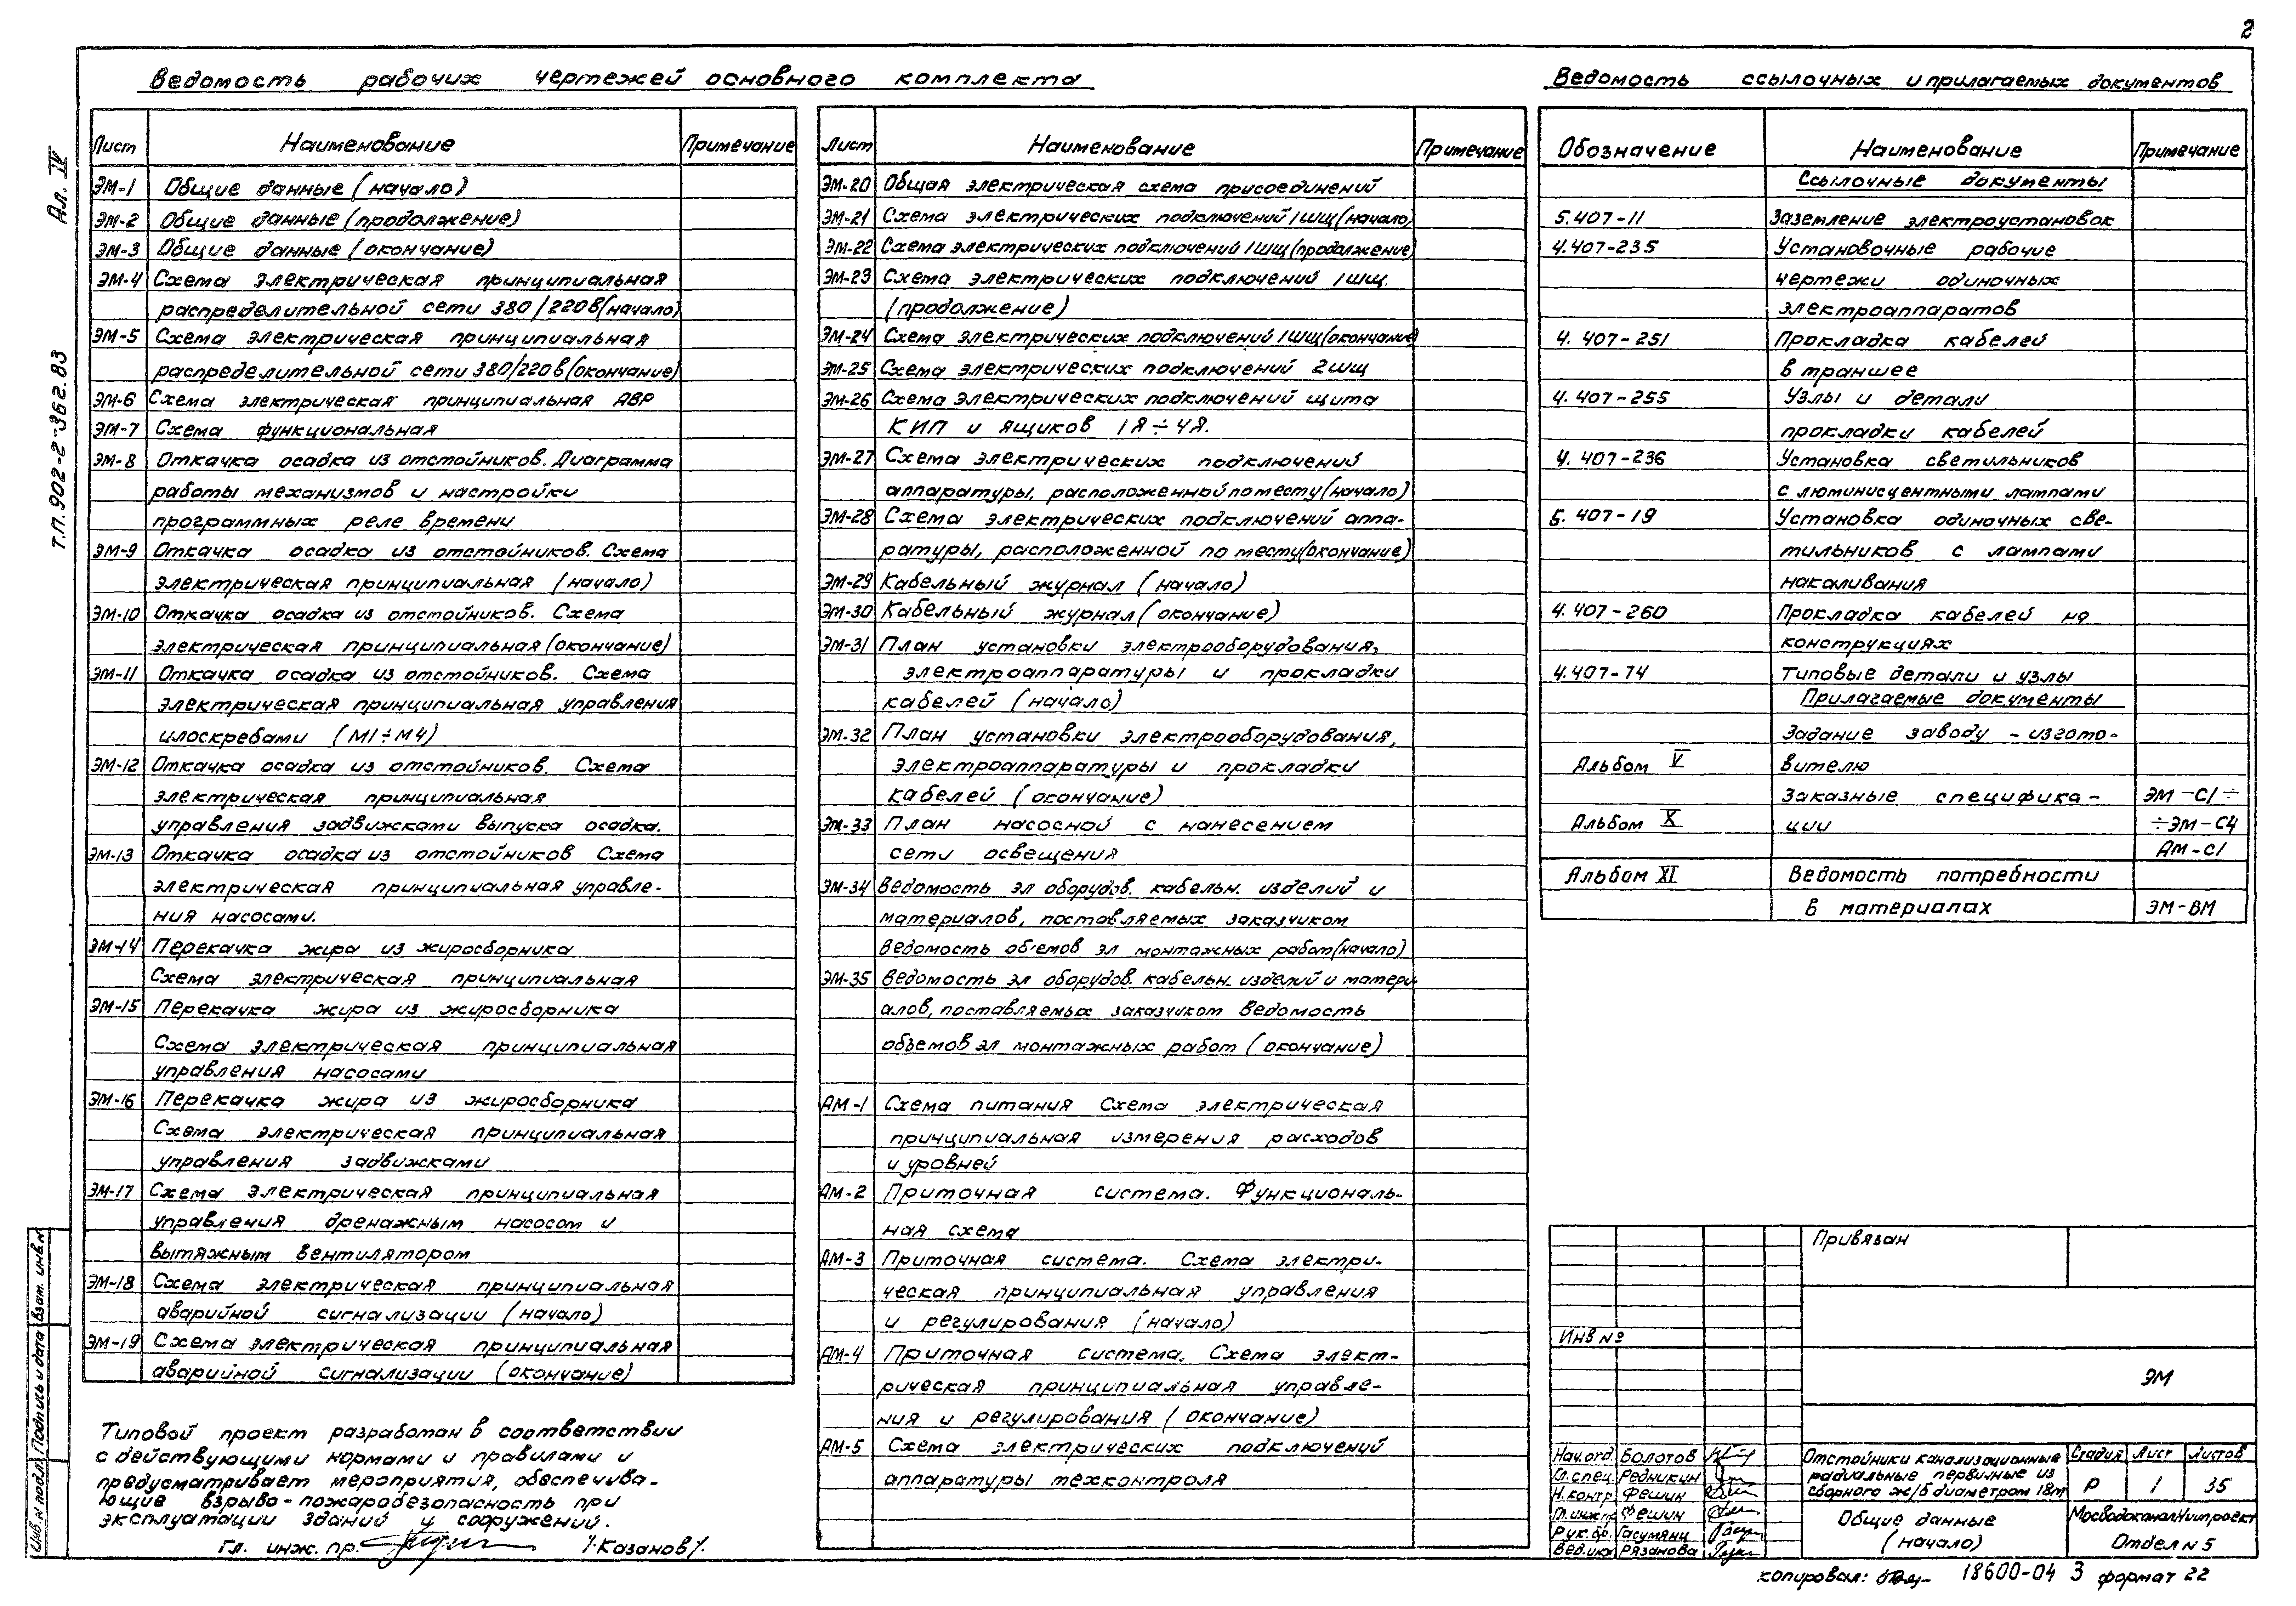 2
Ведомость рабочих чертежей основного комплекта
Лист Наименование Примечание
ЭМ-1 Общие данные (начало)
ЭМ-2 Общие данные (продолжение)
ЭМ-3 Общие данные (окончание)
ЭМ-4 Схема электрическая принципиальная
распределительной сети 380/220В (начало)
ЭМ-5 Схема электрическая принципиальная
распределительной сети 380/220В (окончание)
ЭМ-6 Схема электрическая принципиальная АВР
ЭМ-7 Схема функциональная
ЭМ-8 Откачка осадка из отстойников. Диаграмма
работы механизмов и настройки
программных реле времени
ЭМ-9 Откачка осадка из отстойников. Схема
электрическая принципиальная (начало)
ЭМ-10 Откачка осадка из отстойников. Схема
электрическая принципиальная (окончание)
ЭМ-11 Откачка осадка из отстойников. Схема
электрическая принципиальная управления
илоскребами (М1÷М4)
ЭМ-12 Откачка осадка из отстойников. Схема
электрическая принципиальная
управления задвижками выпуска осадка.
ЭМ-13 Откачка осадка из отстойников Схема
электрическая принципиальная управле-
ния насосами.
ЭМ-14 Перекачка жира из жиросборника
Схема электрическая принципиальная
ЭМ-15 Перекачка жира из жиросборника
Схема электрическая принципиальная
управления насосами
ЭМ-16 Перекачка жира из жиросборника
Схема электрическая принципиальная
управления задвижками
ЭМ-17 Схема электрическая принципиальная
управления дренажным насосом и
вытяжным вентилятором
ЭМ-18 Схема электрическая принципиальная
аварийной сигнализации (начало)
ЭМ-19 Схема электрическая принципиальная
аварийной сигнализации (окончание)
Типовой проект разработан в соответствии
с действующими нормами и правилами и
предусматривает мероприятия, обеспечива-
ющие взрыво-пожаробезопасность при
эксплуатации зданий и сооружений.
Гл. инж. пр. /Казанов/.
Лист Наименование Примечание
ЭМ-20 Общая электрическая схема присоединений
ЭМ-21 Схема электрических подключений 1ШЩ (начало)
ЭМ-22 Схема электрических подключений 1ШЩ (продолжение)
ЭМ-23 Схема электрических подключений 1ШЩ.
(продолжение)
ЭМ-24 Схема электрических подключений 1ШЩ (окончание)
ЭМ-25 Схема электрических подключений 2ШЩ
ЭМ-26 Схема электрических подключений щита
КИП и ящиков 1Я÷4Я.
ЭМ-27 Схема электрических подключений
аппаратуры, расположенной по месту (начало)
ЭМ-28 Схема электрических подключений аппа-
ратуры, расположенной по месту (окончание)
ЭМ-29 Кабельный журнал (начало)
ЭМ-30 Кабельный журнал (окончание)
ЭМ-31 План установки электрооборудования,
электроаппаратуры и прокладки
кабелей (начало)
ЭМ-32 План установки электрооборудования,
электроаппаратуры и прокладки
кабелей (окончание)
ЭМ-33 План насосной с нанесением
сети освещения
ЭМ-34 Ведомость эл оборудов. кабельн. изделий и
материалов, поставляемых заказчиком
Ведомость объемов эл монтажных работ (начало)
ЭМ-35 Ведомость эл оборудов. кабельн. изделий и матери-
алов, поставляемых заказчиком Ведомость
объемов эл монтажных работ (окончание)
АМ-1 Схема питания Схема электрическая
принципиальная измерения расходов
и уровней
АМ-2 Приточная система. Функциональ-
ная схема
АМ-3 Приточная система. Схема электри-
ческая принципиальная управления
и регулирования (начало)
АМ-4 Приточная система. Схема элект-
рическая принципиальная управле-
ния и регулирования (окончание)
АМ-5 Схема электрических подключений
аппаратуры техконтроля
Ведомость ссылочных и прилагаемых документов
Обозначение Наименование Примечание
Ссылочные документы
5.407-11 Заземление электроустановок
4.407-235 Установочные рабочие
чертежи одиночных
электроаппаратов
4.407-251 Прокладка кабелей
в траншее
4.407-255 Узлы и детали
прокладки кабелей
4.407-236 Установка светильников
с люминисцентными лампами
5.407-19 Установка одиночных све-
тильников с лампами
накаливания
4.407-260 Прокладка кабелей на
конструкциях
4.407-74 Типовые детали и узлы
Прилагаемые документы
Задание заводу-изгото-
Альбом V вителю
Заказные специфика- ЭМ-С1÷
Альбом X ции ÷ЭМ-С4
АМ-С1
Альбом XI Ведомость потребности
в материалах ЭМ-ВМ
Привязан
Инв №
ЭМ
Нач.отд. Болотов
Гл.спец. Редникин
Н.контр Фешин
Гл.инж.пр Фешин
Рук.бр. Гасумянц
Вед.инж Рязанова
Отстойники канализационные
радиальные первичные из
сборного ж/б диаметром 18м
Стадия Лист Листов
Р 1 35
Общие данные
(начало)
МосводоканалНИИпроект
Отдел №5
Копировал: 18600-04 3 формат 22
Ал. IV
т.п. 902-2-362.83
Инв.№ подл. Подпись и дата Взам. инв.№